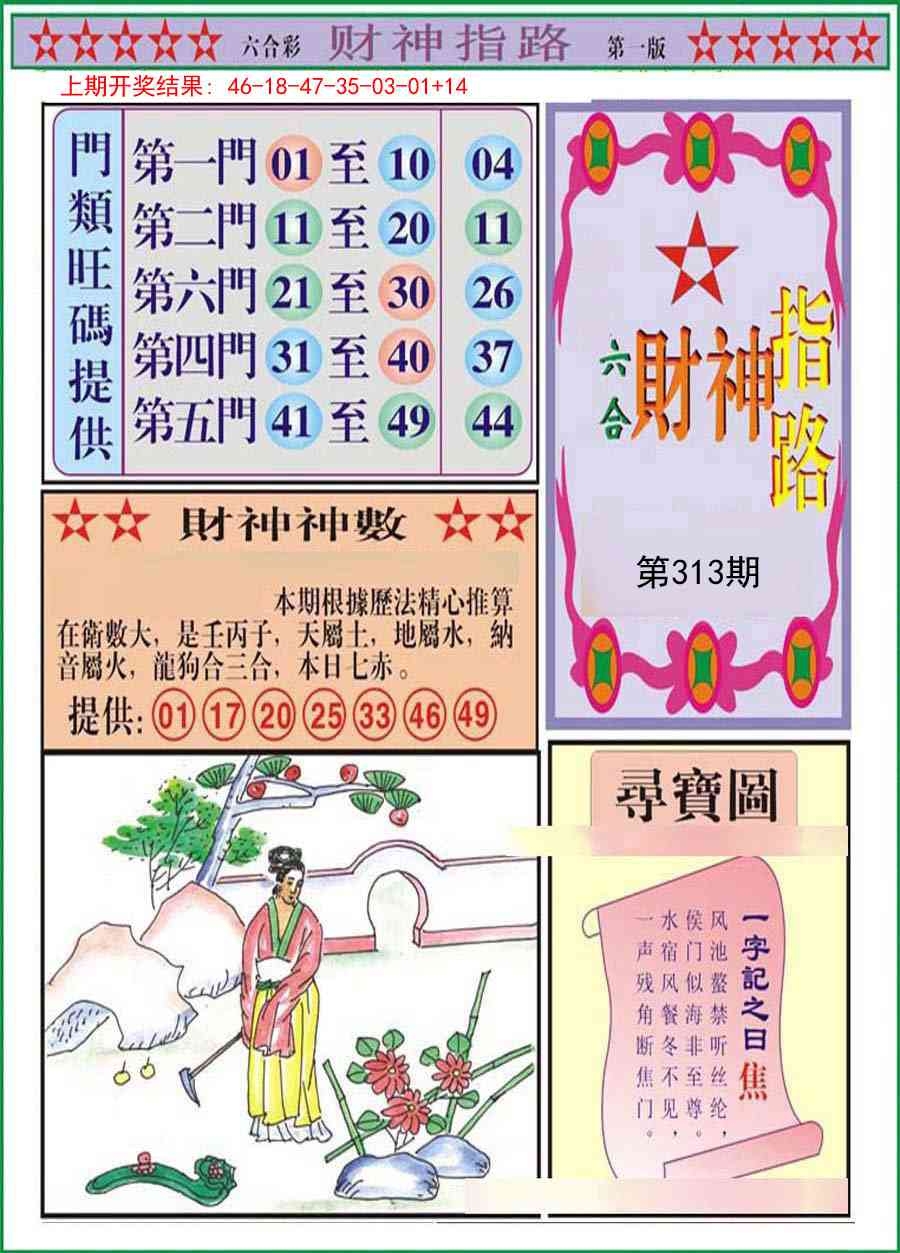 六合彩 财神指路 第一版
上期开奖结果：46-18-47-35-03-01+14
門類旺碼提供
第一門 01 至 10 04
第二門 11 至 20 11
第六門 21 至 30 26
第四門 31 至 40 37
第五門 41 至 49 44
六合
財神
指路
第313期
財神神數
本期根據歷法精心推算
在衛數大，是壬丙子，天屬土，地屬水，納
音屬火，龍狗合三合，本日七赤。
提供: 01 17 20 25 33 46 49
尋寶圖
一字記之曰 焦
风池螯禁听丝纶，
侯门似海非至尊。
水宿风餐冬不见，
一声残角断焦门。